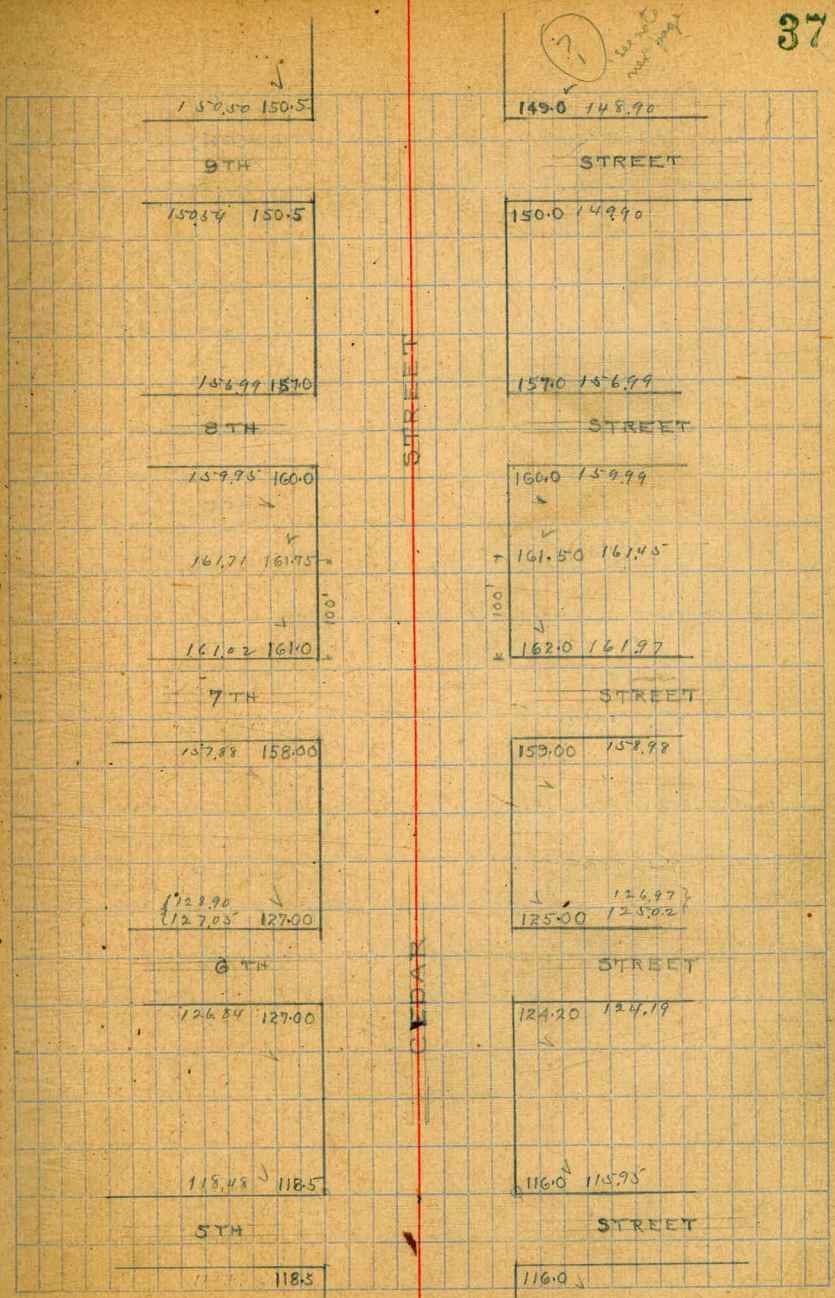 37
?
see note
150.50 150.5 149.0 148.90
9TH STREET
150.54 150.5 150.0 149.90
156.99 157.0 157.0 156.99
STREET
8TH STREET
159.95 160.0 160.0 159.99
161.71 161.75 161.50 161.45
100' 100'
161.02 161.0 162.0 161.97
7TH STREET
157.88 158.00 159.00 158.98
128.90 126.97
127.05 127.00 125.00 125.02
CEDAR
6TH STREET
126.84 127.00 124.20 124.19
118.48 118.5 116.0 115.95
5TH STREET
118.5 116.0